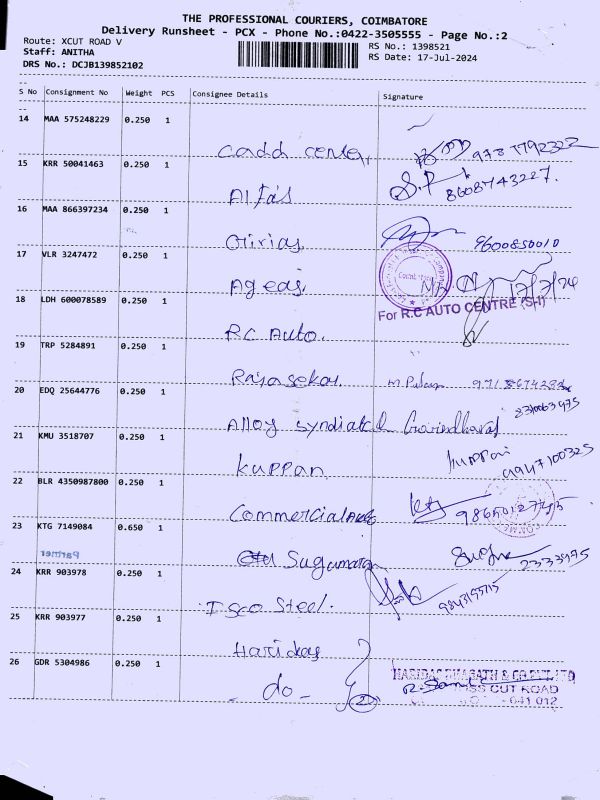 THE PROFESSIONAL COURIERS, COIMBATORE
Delivery Runsheet - PCX - Phone No.:0422-3505555 - Page No.:2
Route: XCUT ROAD V
RS No.: 1398521
Staff: ANITHA
RS Date: 17-Jul-2024
DRS No.: DCJB139852102
S No Consignment No Weight PCS Consignee Details Signature
14 MAA 575248229 0.250 1
Cadd center,
15 KRR 50041463 0.250 1
S.P 8608743227.
Alfas
16 MAA 866397234 0.250 1
Girias 9600850010
17 VLR 3247472 0.250 1
Ageas 17/7/24
18 LDH 600078589 0.250 1
For R.C AUTO CENTRE (S-I)
RC Auto.
19 TRP 5284891 0.250 1
Rajasekar.
20 EDQ 25644776 0.250 1
Alloy syndicate
21 KMU 3518707 0.250 1
Kuppan
22 BLR 4350987800 0.250 1
Commercial
23 KTG 7149084 0.650 1
Sugumaran
24 KRR 903978 0.250 1
Isco Steel.
25 KRR 903977 0.250 1
Haridas
26 GDR 5304986 0.250 1
- do -
CUT ROAD
641 012